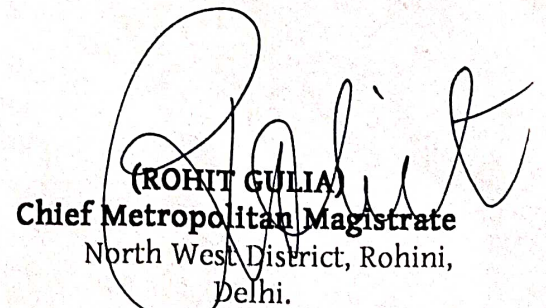 (ROHIT GULIA)
Chief Metropolitan Magistrate
North West District, Rohini,
Delhi.